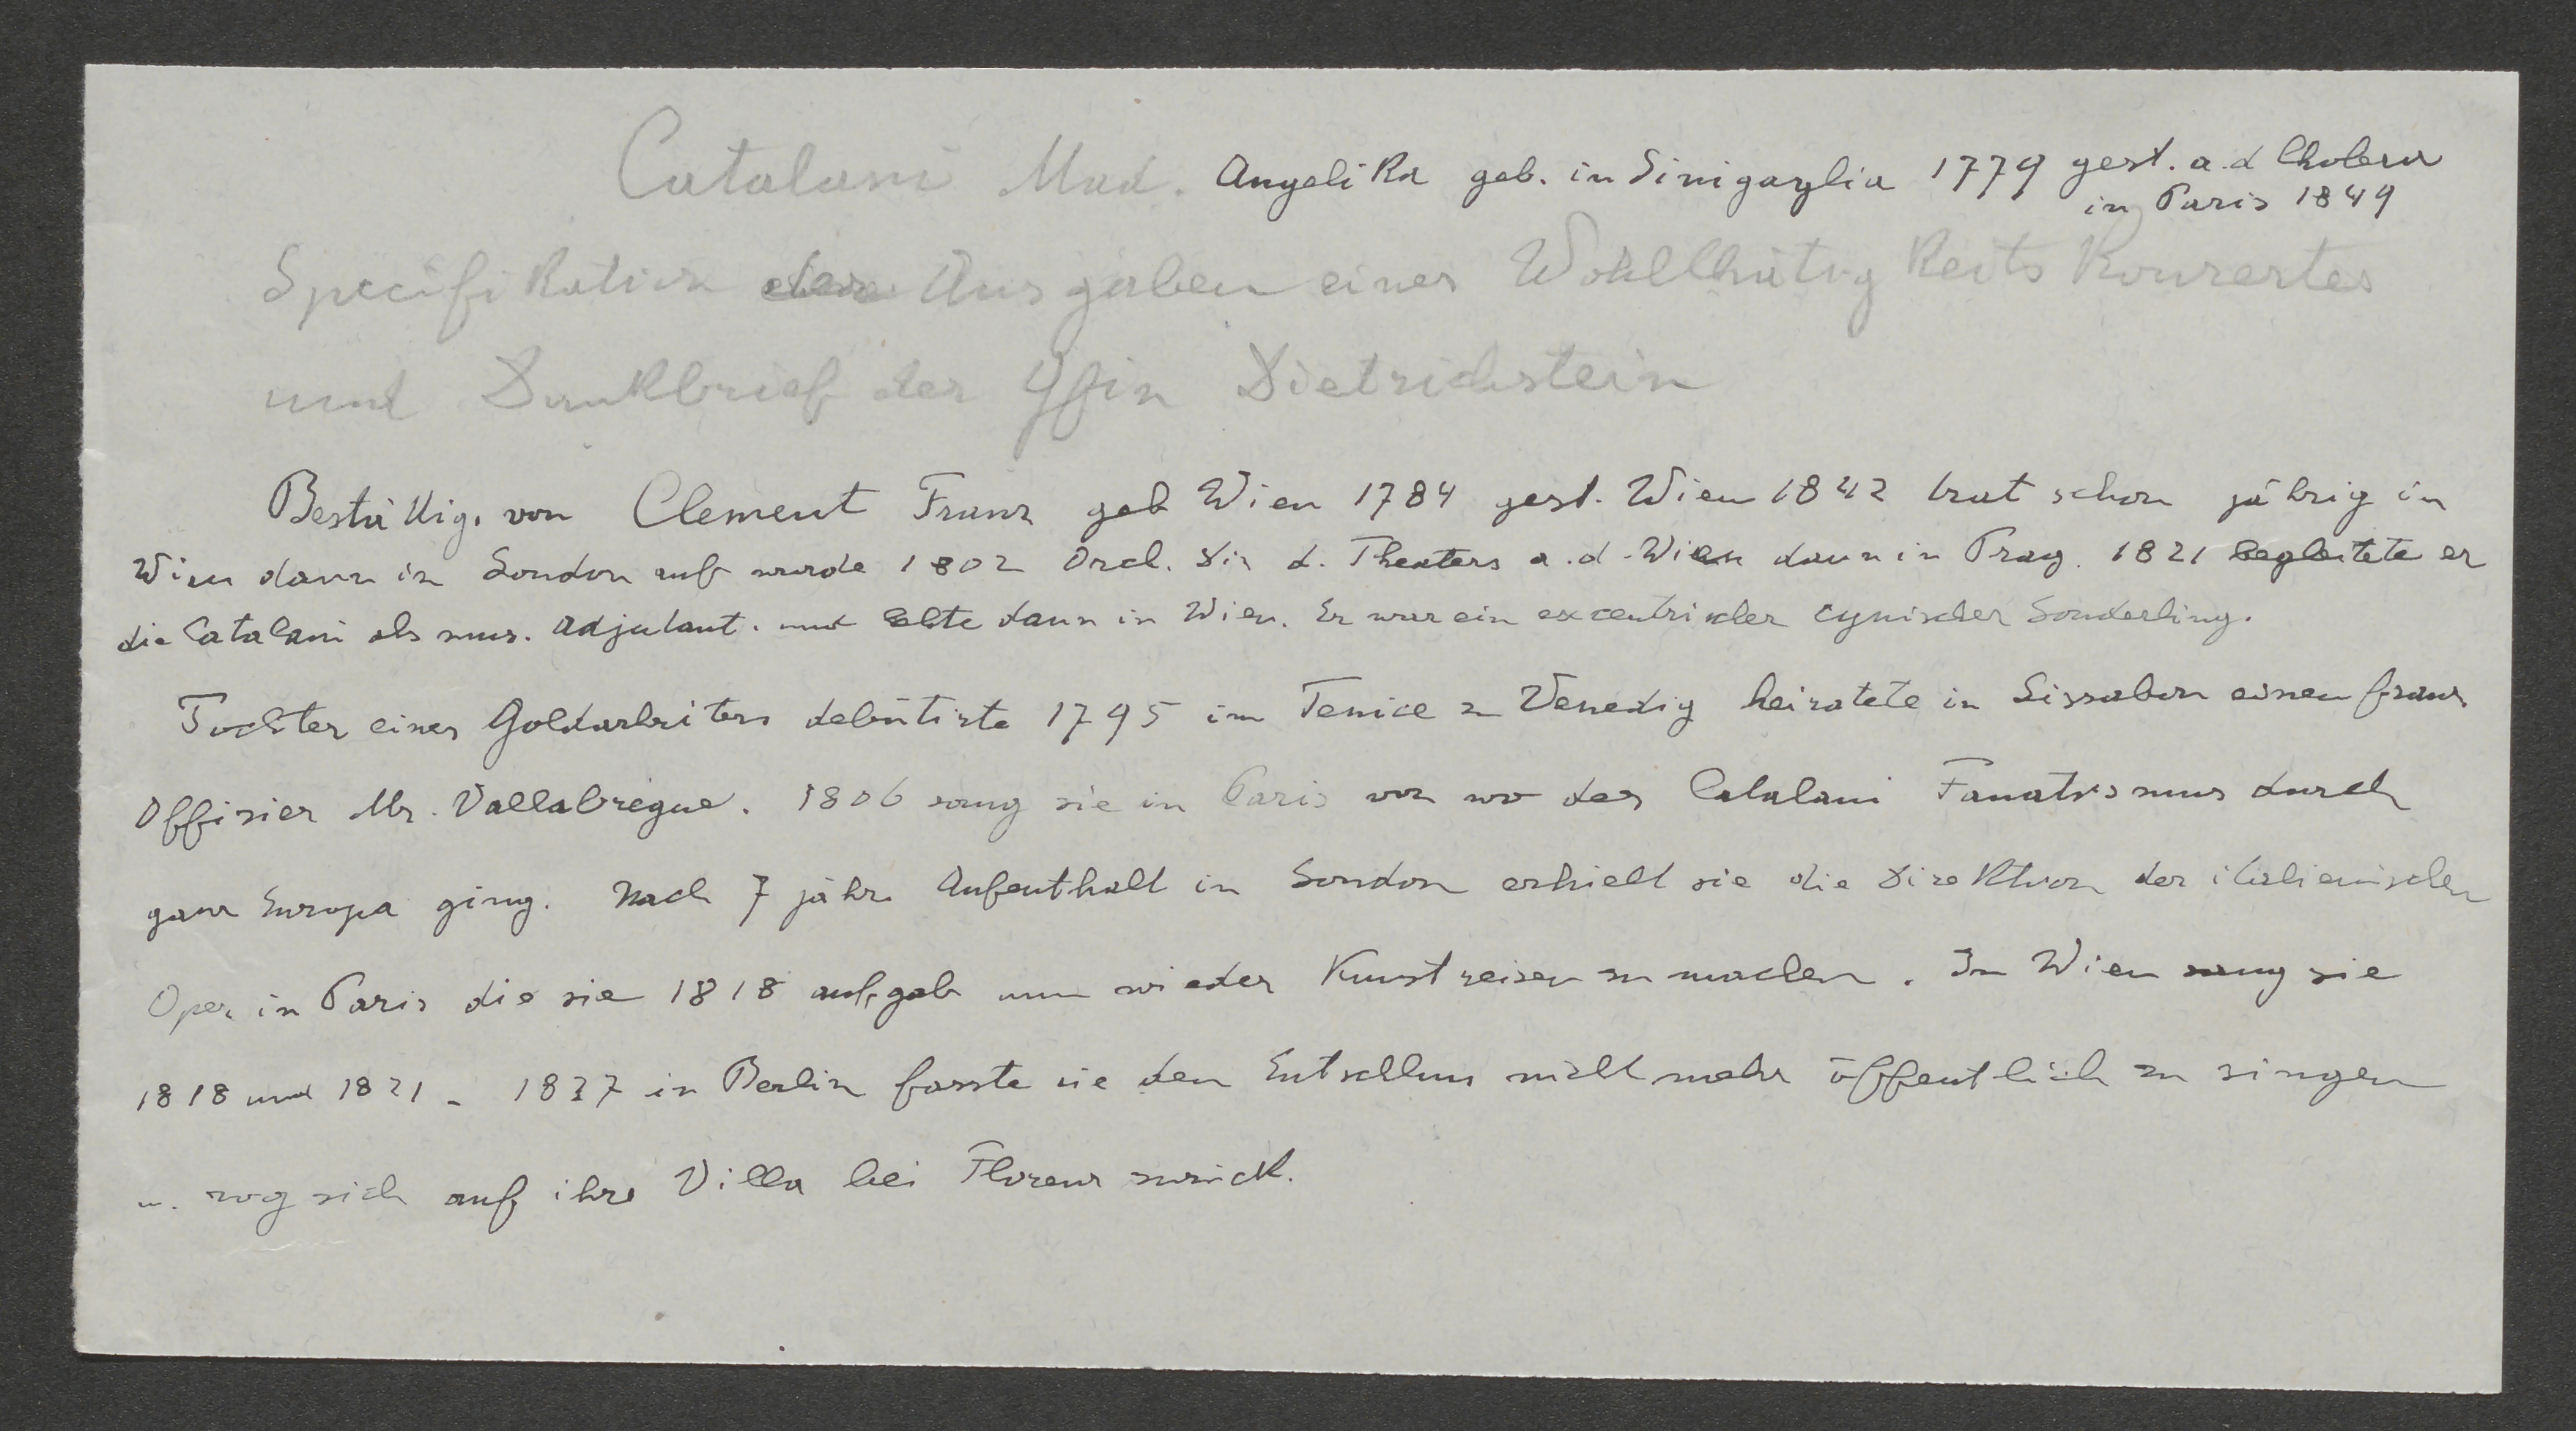 Catalani Mad. Angelika geb. in Sinigaglia 1779 gest. a. d Cholera
in Paris 1849
Specifikation der Ausgaben eines Wohlthätigkeits Konzertes
und Dankbrief der Gfin Dietrichstein
Bestättig. von Clement Franz geb Wien 1784 gest. Wien 1842 trat schon jährig in
Wien dann in London auf wurde 1802 Orch. Dir d. Theaters a. d. Wien dann in Prag. 1821 begleitete er
die Catalani als mus. Adjutant. und lebte dann in Wien. Er war ein excentrischer cynischer Sonderling.
Tochter eines Goldarbeiters debütirte 1795 im Fenice z Venedig heiratete in Lissabon einen franz
Offizier Mr. Vallabrègue. 1806 sang sie in Paris von wo der Catalani Fanatismus durch
ganz Europa ging. Nach 7 jähr. Aufenthalt in London erhielt sie die Direktion der italienischen
Oper in Paris die sie 1818 aufgab um wieder Kunstreisen zu machen. In Wien sang sie
1818 und 1821 - 1827 in Berlin fasste sie den Entschluss nicht mehr öffentlich zu singen
u. zog sich auf ihre Villa bei Florenz zurück.